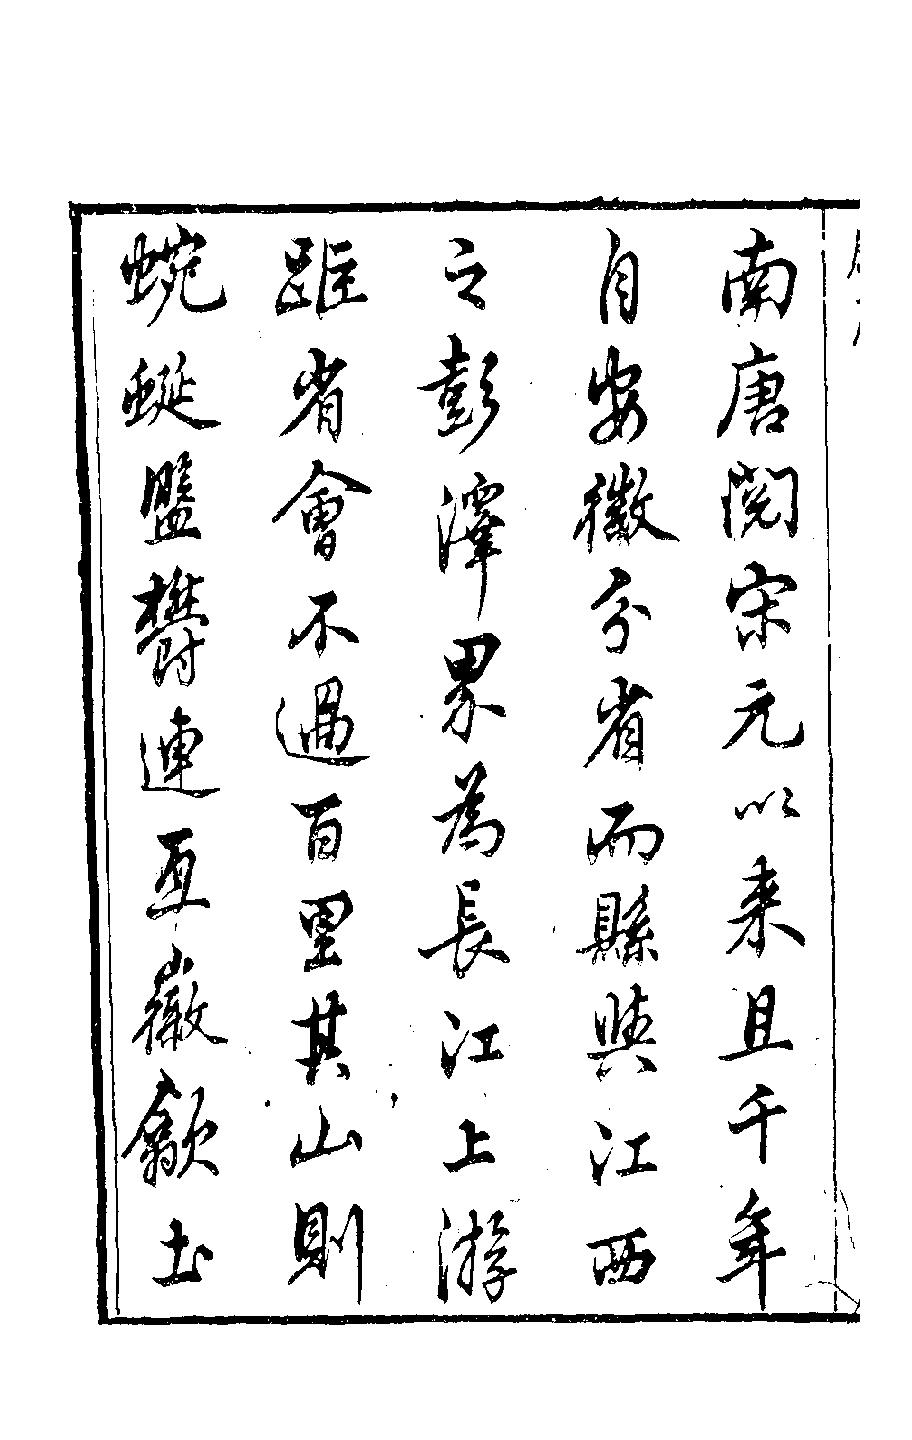 南唐閱宋元以来且千年
自安徽分省而縣與江西
之彭澤界為長江上游
距省會不過百里其山則
蜿蜒盤鬱連亙徽歙土